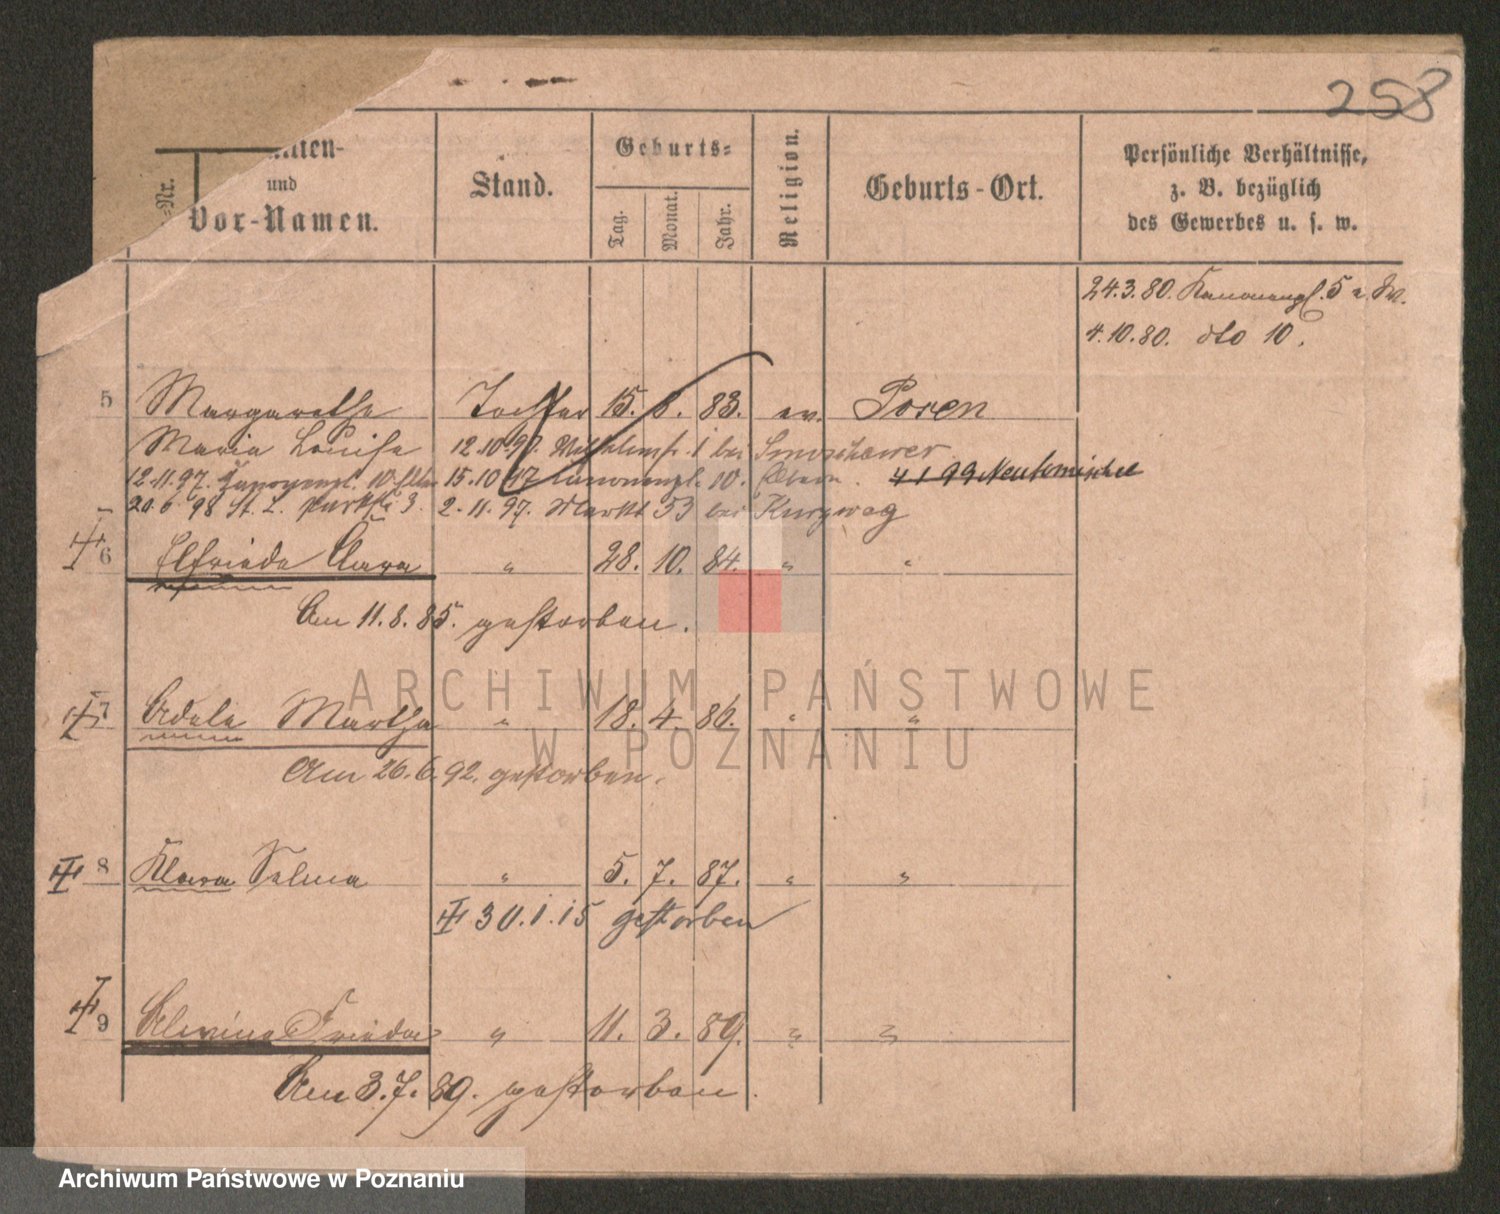 258
-Nr.
und
Vor-Namen.
Stand.
Geburts-
Tag.
Monat.
Jahr.
Religion.
Geburts-Ort.
Persönliche Verhältnisse,
z. B. bezüglich
des Gewerbes u. s. w.
24.3.80. Kanonenpl. 5
4.10.80. dto 10.
5 Margarethe Tochter 15. 8. 83. ev. Posen
Maria Louise 12.10.97. 1 bei
12.11.97. Kanonenpl. 10. 15.10.97 Kanonenpl. 10. Eltern. 4 1 99 Neutomischel
20.6.98 St. L. Parkstr 3. 2.11.97. Markt 53 bei Kurzweg
6 Elfriede Clara " 28. 10. 84. " "
Am 11.8.85. gestorben.
7 Adele Martha " 18. 4. 86. " "
Am 26.6.92. gestorben.
8 Klara Selma " 5. 7. 87. " "
30.1.15 gestorben
9 Alwine Frieda " 11. 3. 89. " "
Am 3.7.89. gestorben.
ARCHIWUM PAŃSTWOWE
W POZNANIU
Archiwum Państwowe w Poznaniu